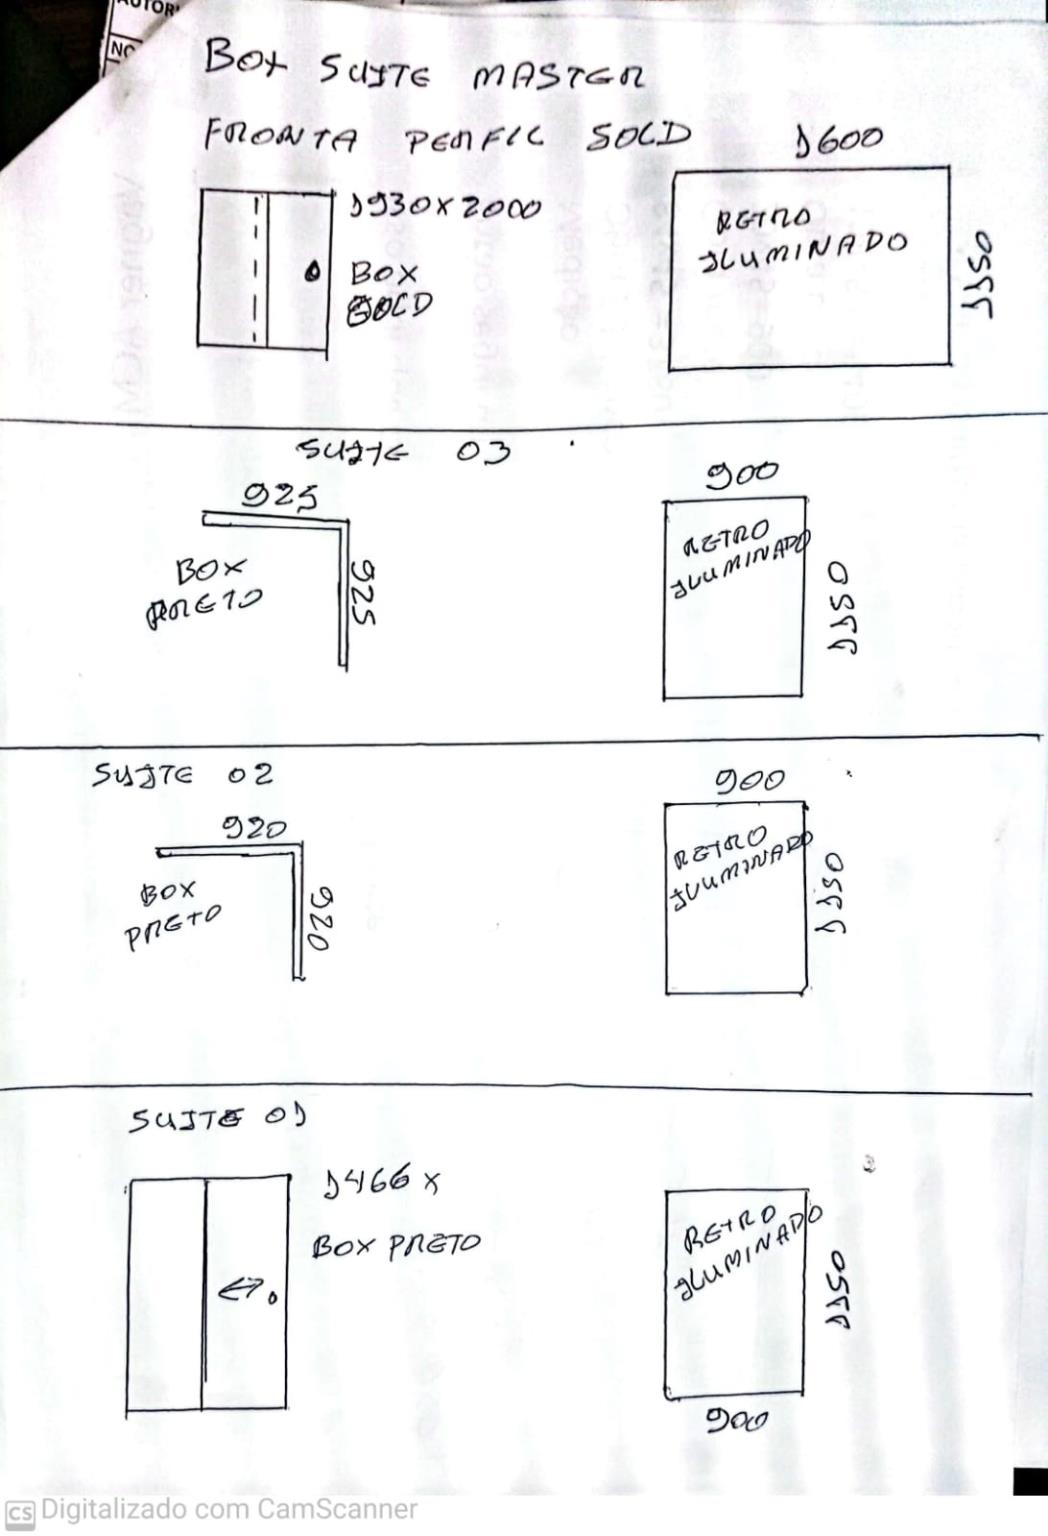 NO
BOX SUITE MASTER
FRONTA PERFIL GOLD
1600
1930X2000
BOX
GOLD
RETRO
ILUMINADO
1150
SUITE 03
925
925
BOX
PRETO
900
RETRO
ILUMINADO
1150
SUITE 02
920
920
BOX
PRETO
900
RETRO
ILUMINADO
1150
SUITE 01
1466 X
BOX PRETO
RETRO
ILUMINADO
1150
900
CS Digitalizado com CamScanner